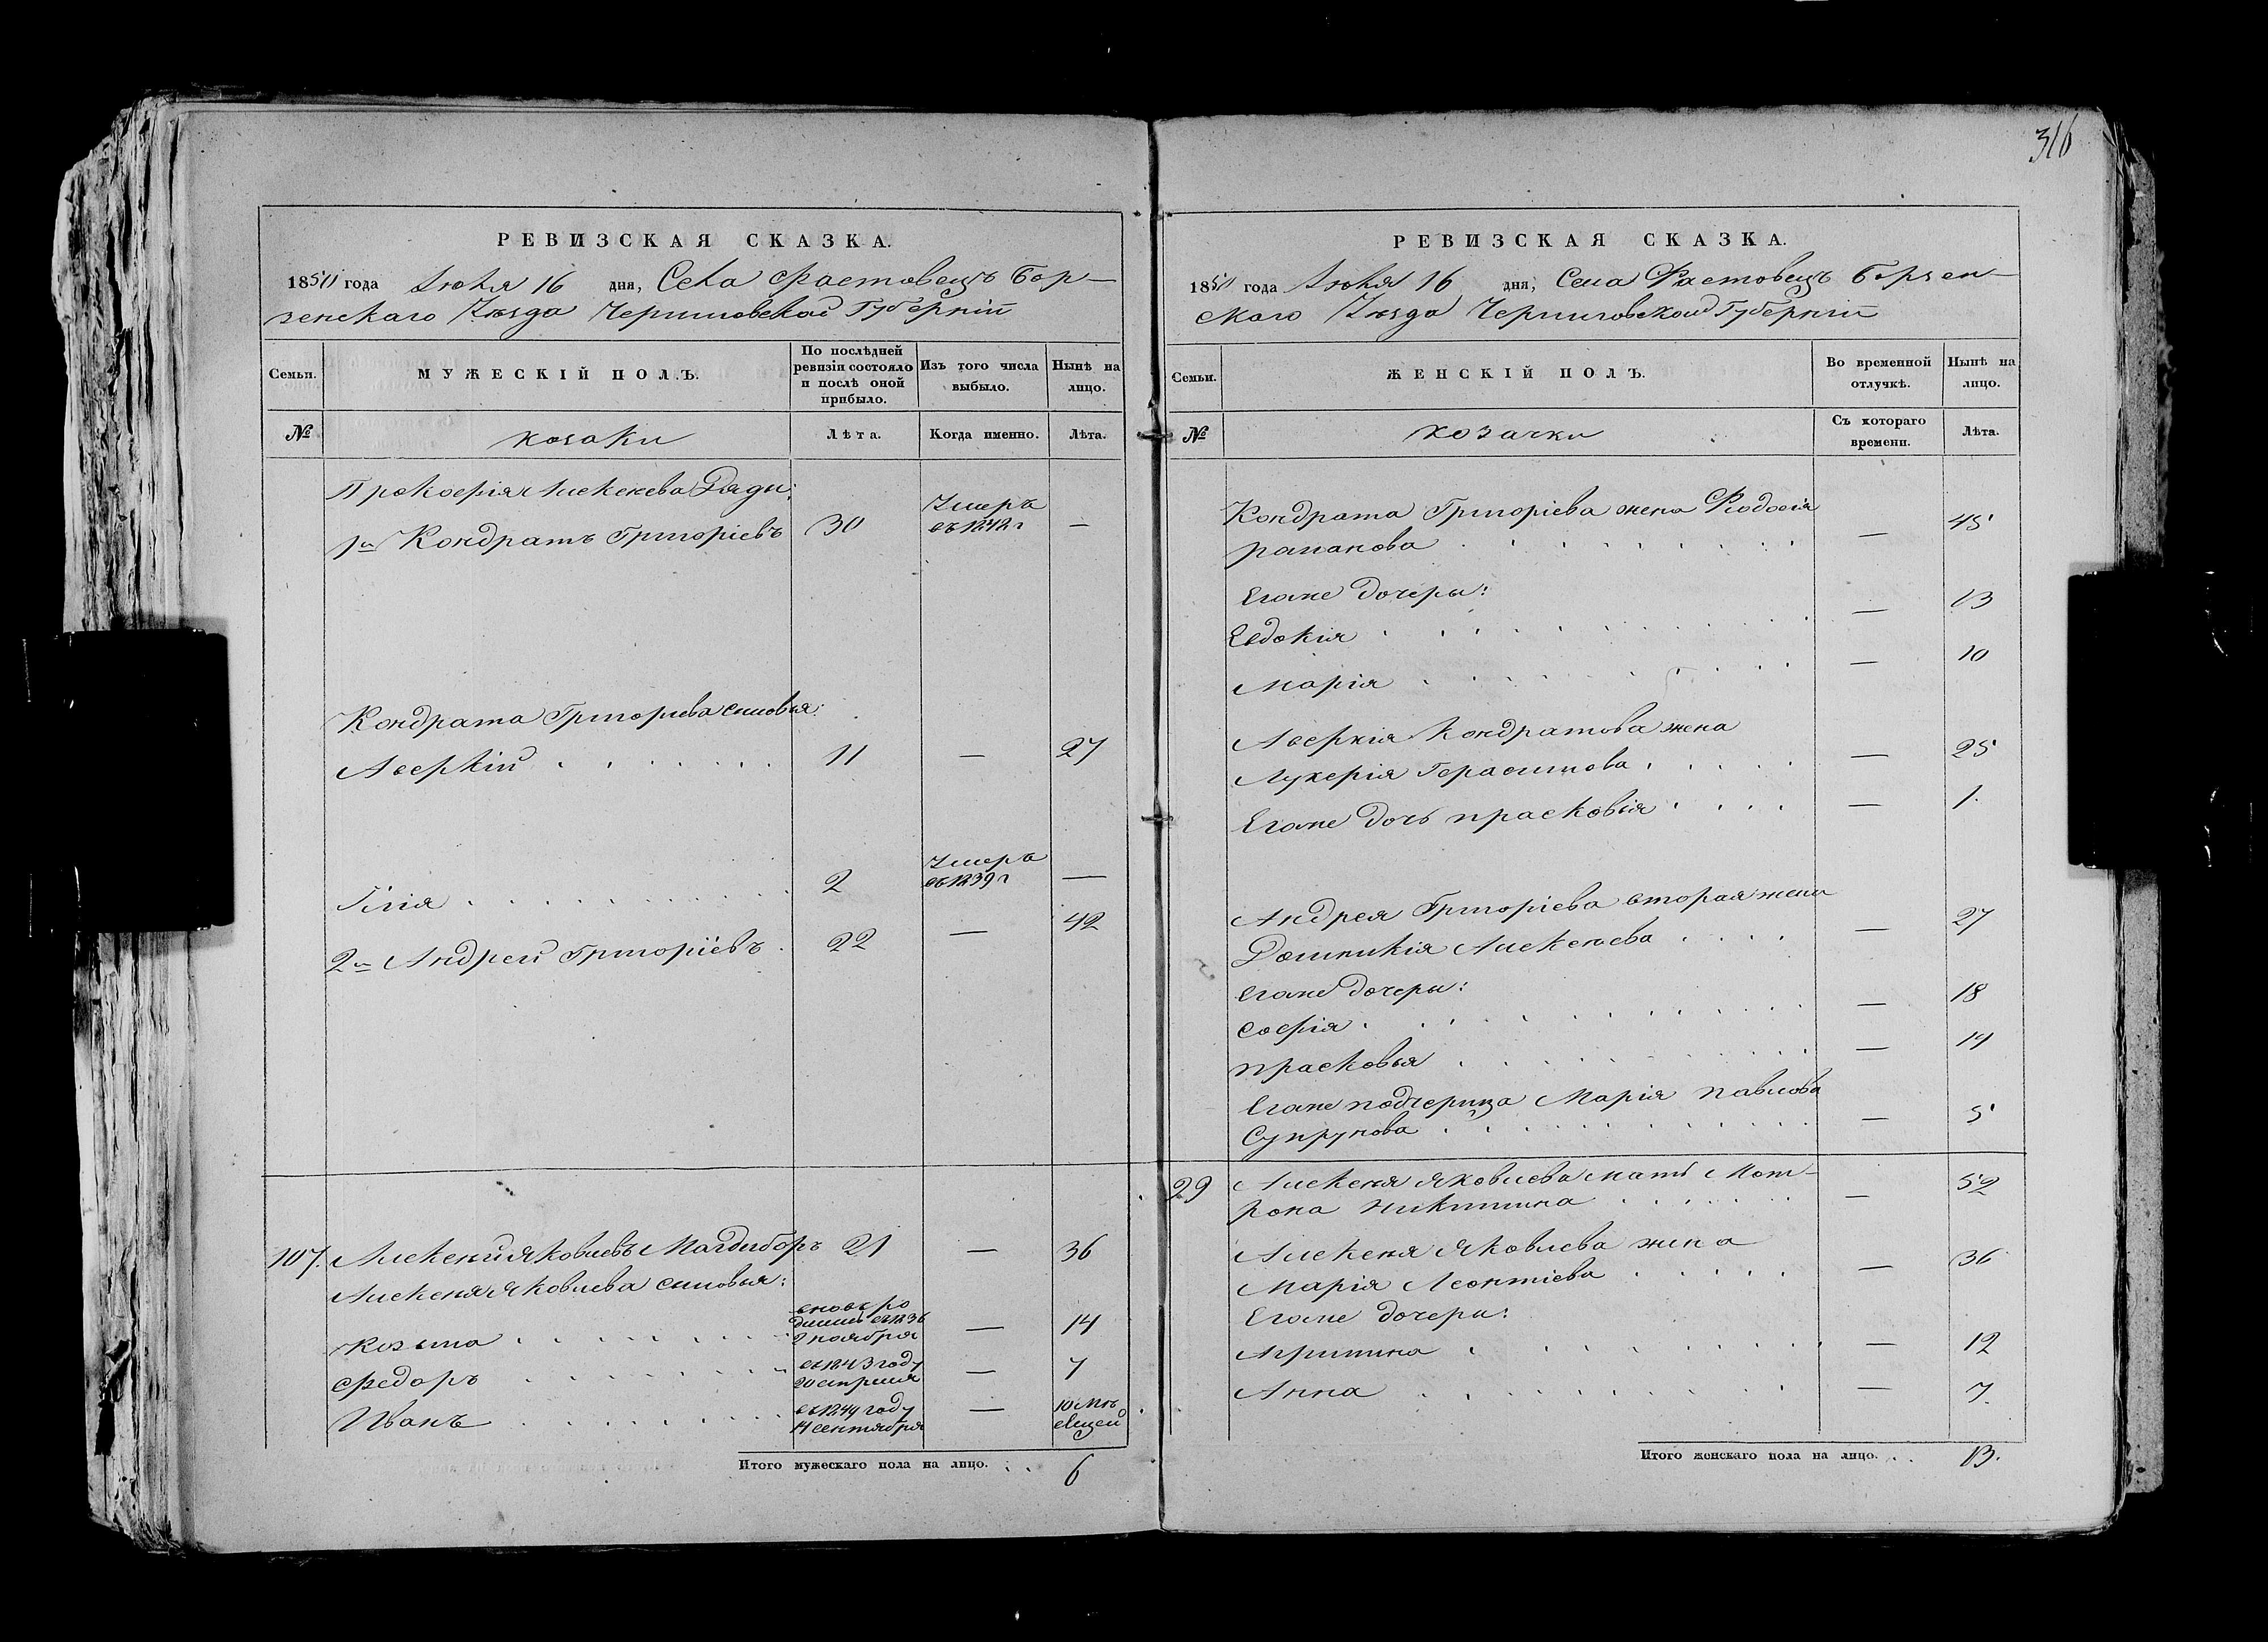 316
РЕВИЗСКАЯ СКАЗКА.
1850 года Июля 16 дня, Села Фастовецъ Бор-
зенскаго Уѣзда Черниговской Губерніи
Семьи.
МУЖЕСКІЙ ПОЛЪ.
По послѣдней ревизіи состояло и послѣ оной прибыло.
Изъ того числа выбыло.
Нынѣ на лицо.
№
козаки
Лѣта.
Когда именно.
Лѣта.
Прокофія Алексеева Дяди:
1й Кондратъ Григоріевъ 30 Умеръ въ 1842 г —
Кондрата Григориева сыновья:
Аверкій 11 — 27
Гілія 2 Умеръ въ 1839 г —
2й Андрей Григоріевъ 22 — 42
107. Алексей Яковлевъ Магдыборъ 21 — 36
Алексея Яковлева сыновья:
Козьма вновь ро
дился въ 1836
2 ноября — 14
Федоръ въ 1843 году
20 апреля — 7
Иванъ въ 1849 году
14 сентября — 10 мѣ
сяцей
Итого мужескаго пола на лицо. . . 6
РЕВИЗСКАЯ СКАЗКА.
1850 года Июля 16 дня, Села Фастовецъ Борзен-
скаго Уѣзда Черниговской Губерніи
Семьи.
ЖЕНСКІЙ ПОЛЪ.
Во временной отлучкѣ.
Нынѣ на лицо.
№
козачки
Съ котораго времени.
Лѣта.
Кондрата Григоріева жена Феодосія
романова — 45
Егоже дочери:
Евдокія — 13
Марія — 10
Аверкія Кондратова жена
Лукерія Герасимова — 25
Егоже дочь прасковія — 1.
Андрея Григоріева вторая жена
Домникія Алексеева — 27
Егоже дочери:
Софія — 18
прасковья — 14
Егоже подчерица Марія Павлова
Супрунова — 5
29 Алексея Яковлева мать Мот-
рона Никитина — 52
Алексея Яковлева жена
Марія Леонтіева — 36
Егоже дочери:
Агрипина — 12
Анна — 7.
Итого женскаго пола на лицо. . . 13.